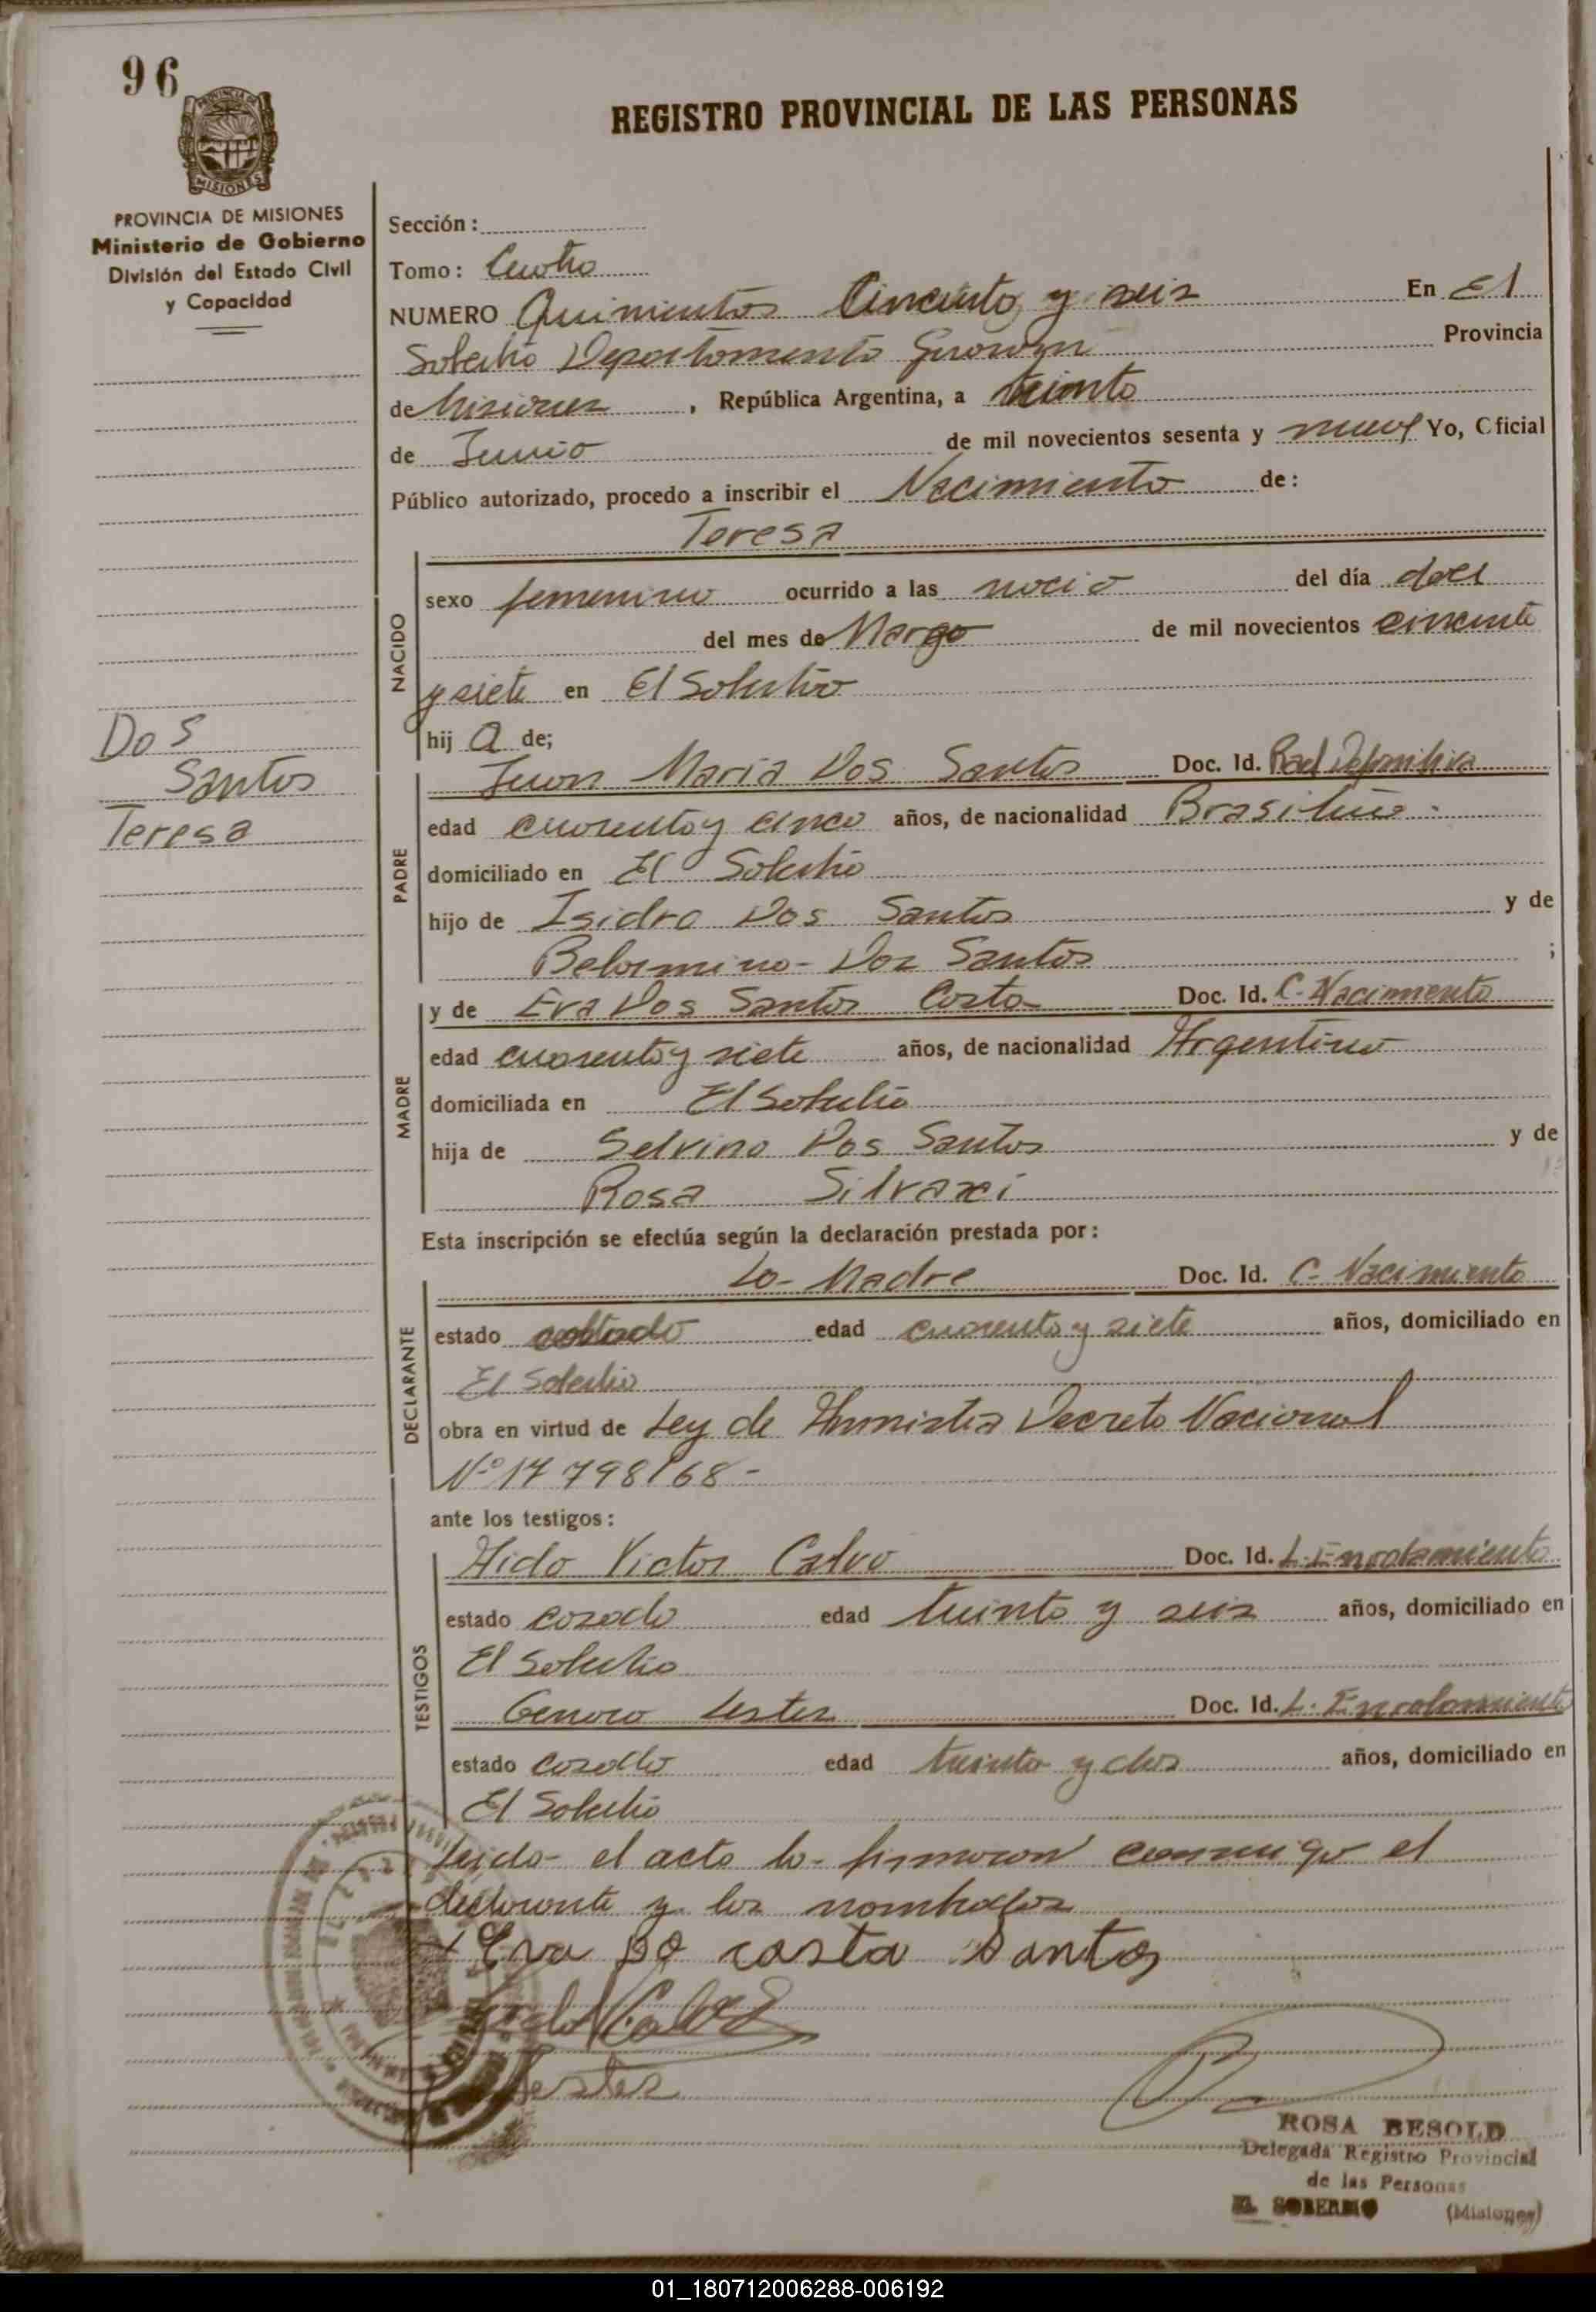 96
REGISTRO PROVINCIAL DE LAS PERSONAS
PROVINCIA DE MISIONES
MISIONES
PROVINCIA DE MISIONES
Ministerio de Gobierno
División del Estado Civil
y Capacidad
Sección:
Tomo: Cuatro
NUMERO Quinientos Cincuenta y seis En El
Soberbio Departamento Guarani Provincia
de Misiones, República Argentina, a treinta
de Junio de mil novecientos sesenta y nueve Yo, Oficial
Público autorizado, procedo a inscribir el Nacimiento de:
Teresa
NACIDO
sexo femenino ocurrido a las nocio del día doce
del mes de Marzo de mil novecientos cincuenta
y siete en El Soberbio
hij a de;
Dos
Santos
Teresa
PADRE
Juan Maria Dos Santos Doc. Id. Rad Definitiva
edad cuarenta y cinco años, de nacionalidad Brasileño
domiciliado en El Soberbio
hijo de Isidro Dos Santos y de
Belarmina Dos Santos ;
MADRE
y de Eva Dos Santos Costa Doc. Id. C. Nacimiento
edad cuarenta y siete años, de nacionalidad Argentina
domiciliada en El Soberbio
hija de Selvino Dos Santos y de
Rosa
Esta inscripción se efectúa según la declaración prestada por:
DECLARANTE
La Madre Doc. Id. C. Nacimiento
estado edad cuarenta y siete años, domiciliado en
El Soberbio
obra en virtud de Ley de Amnistia Decreto Nacional
Nº 17798/68-
ante los testigos:
TESTIGOS
Aido Victor Calvo Doc. Id. L. Enrolamiento
estado casado edad treinta y seis años, domiciliado en
El Soberbio
Genaro Doc. Id. L. Enrolamiento
estado casado edad treinta y dos años, domiciliado en
El Soberbio
Leida el acta la firmaron conmigo el
declarante y los nombrados
Eva Da costa Santos
ROSA BESOLD
Delegada Registro Provincial
de las Personas
EL SOBERBIO (Misiones)
01_180712006288-006192